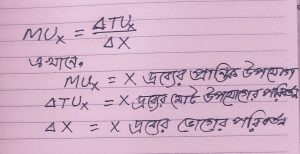 MUₓ = ΔTUₓ / ΔX
এখানে,
MUₓ = X দ্রব্যের প্রান্তিক উপযোগ
ΔTUₓ = X দ্রব্যের মোট উপযোগের পরিবর্তন
ΔX = X দ্রব্যের ভোগের পরিবর্তন